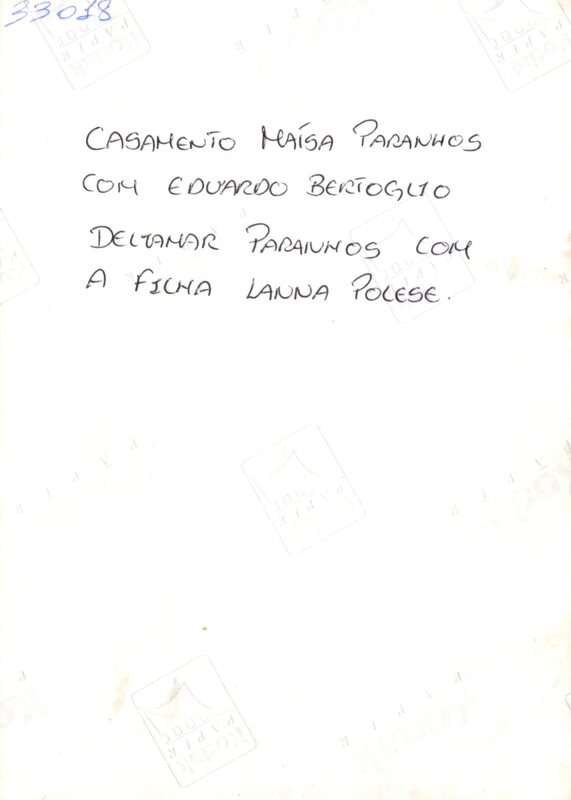 33018
CASAMENTO MAÍSA PARANHOS
COM EDUARDO BERTOGLIO
DELTAMAR PARANHOS COM
A FILHA LANNA POLESE.
Kodak
PAPER
Kodak
PAPER